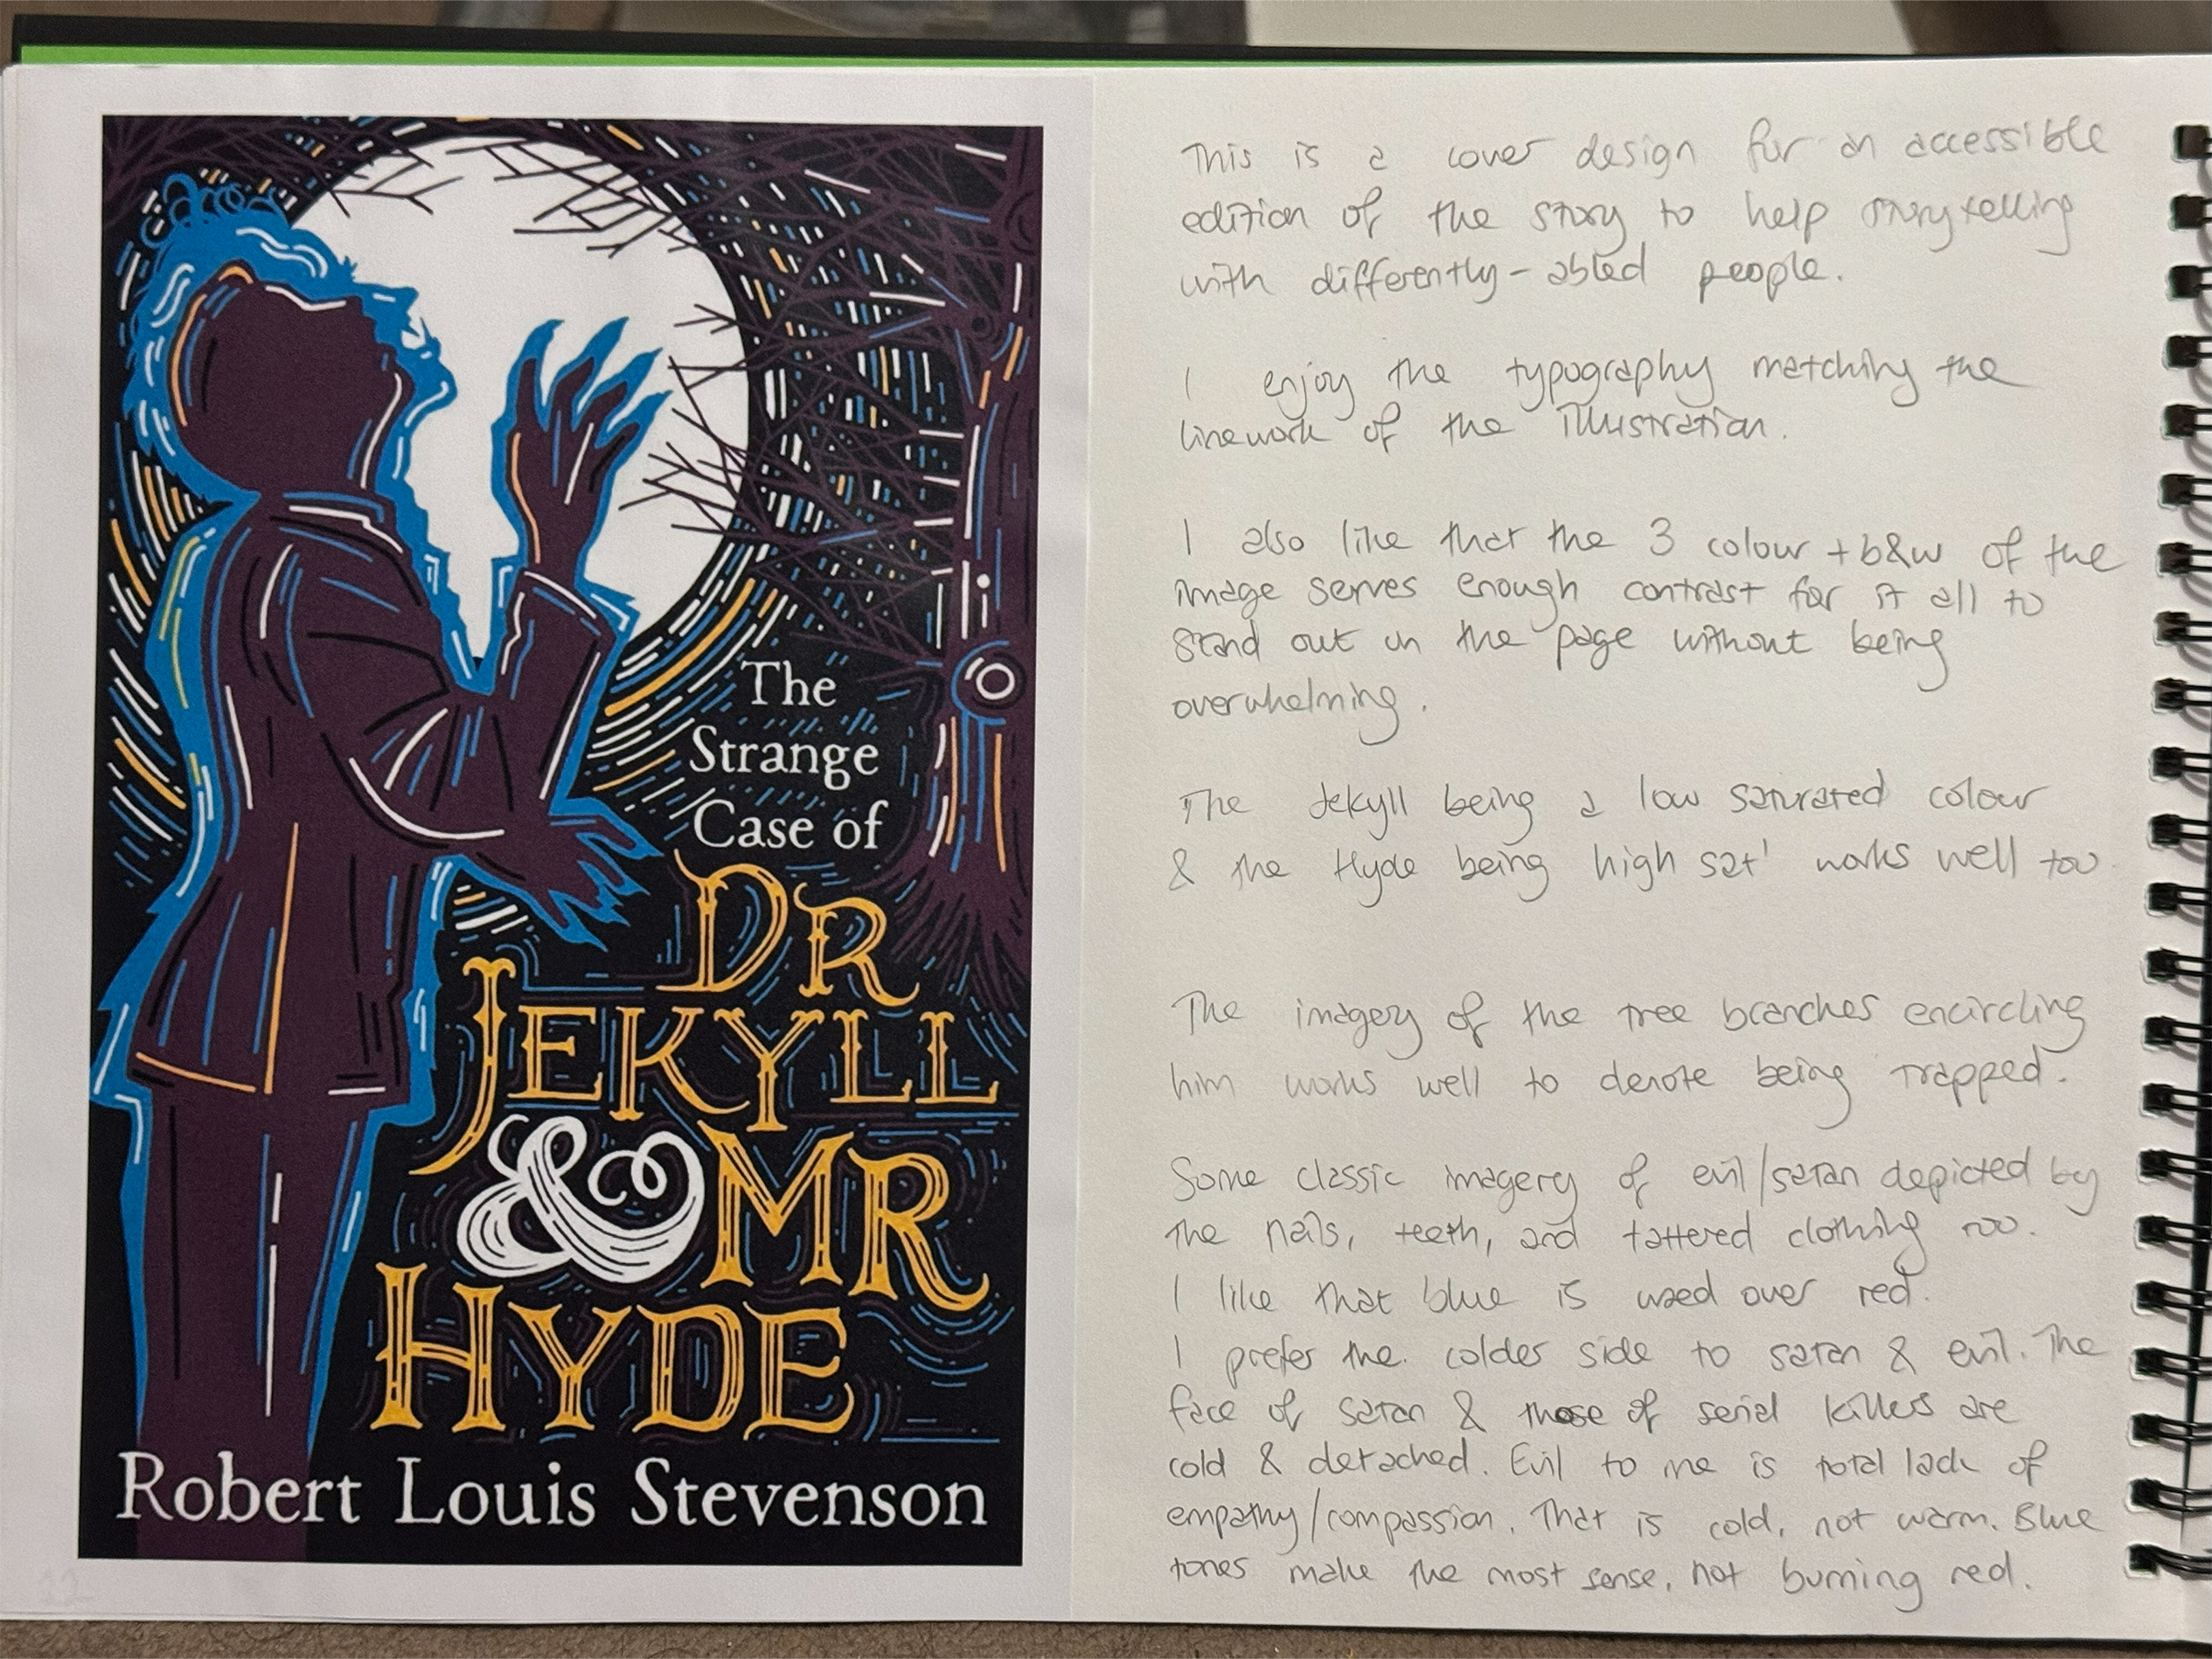 The
Strange
Case of
DR
JEKYLL
& MR
HYDE
Robert Louis Stevenson
This is a cover design for an accessible
edition of the story to help storytelling
with differently-abled people.
I enjoy the typography matching the
linework of the illustration.
I also like that the 3 colour + b&w of the
image serves enough contrast for it all to
stand out on the page without being
overwhelming.
The Jekyll being a low saturated colour
& the Hyde being high sat' works well too
The imagery of the tree branches encircling
him works well to denote being trapped.
Some classic imagery of evil/satan depicted by
the nails, teeth, and tattered clothing too.
I like that blue is used over red.
I prefer the colder side to satan & evil. The
face of satan & those of serial killers are
cold & detached. Evil to me is total lack of
empathy/compassion. That is cold, not warm. Blue
tones make the most sense, not burning red.